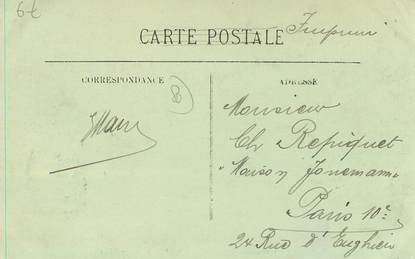 6€
CARTE POSTALE
Imprimé
CORRESPONDANCE
ADRESSE
B
Monsieur
Ch Repiquet
"Maison Jonemann"
Paris 10e
24 Rue d'Enghien